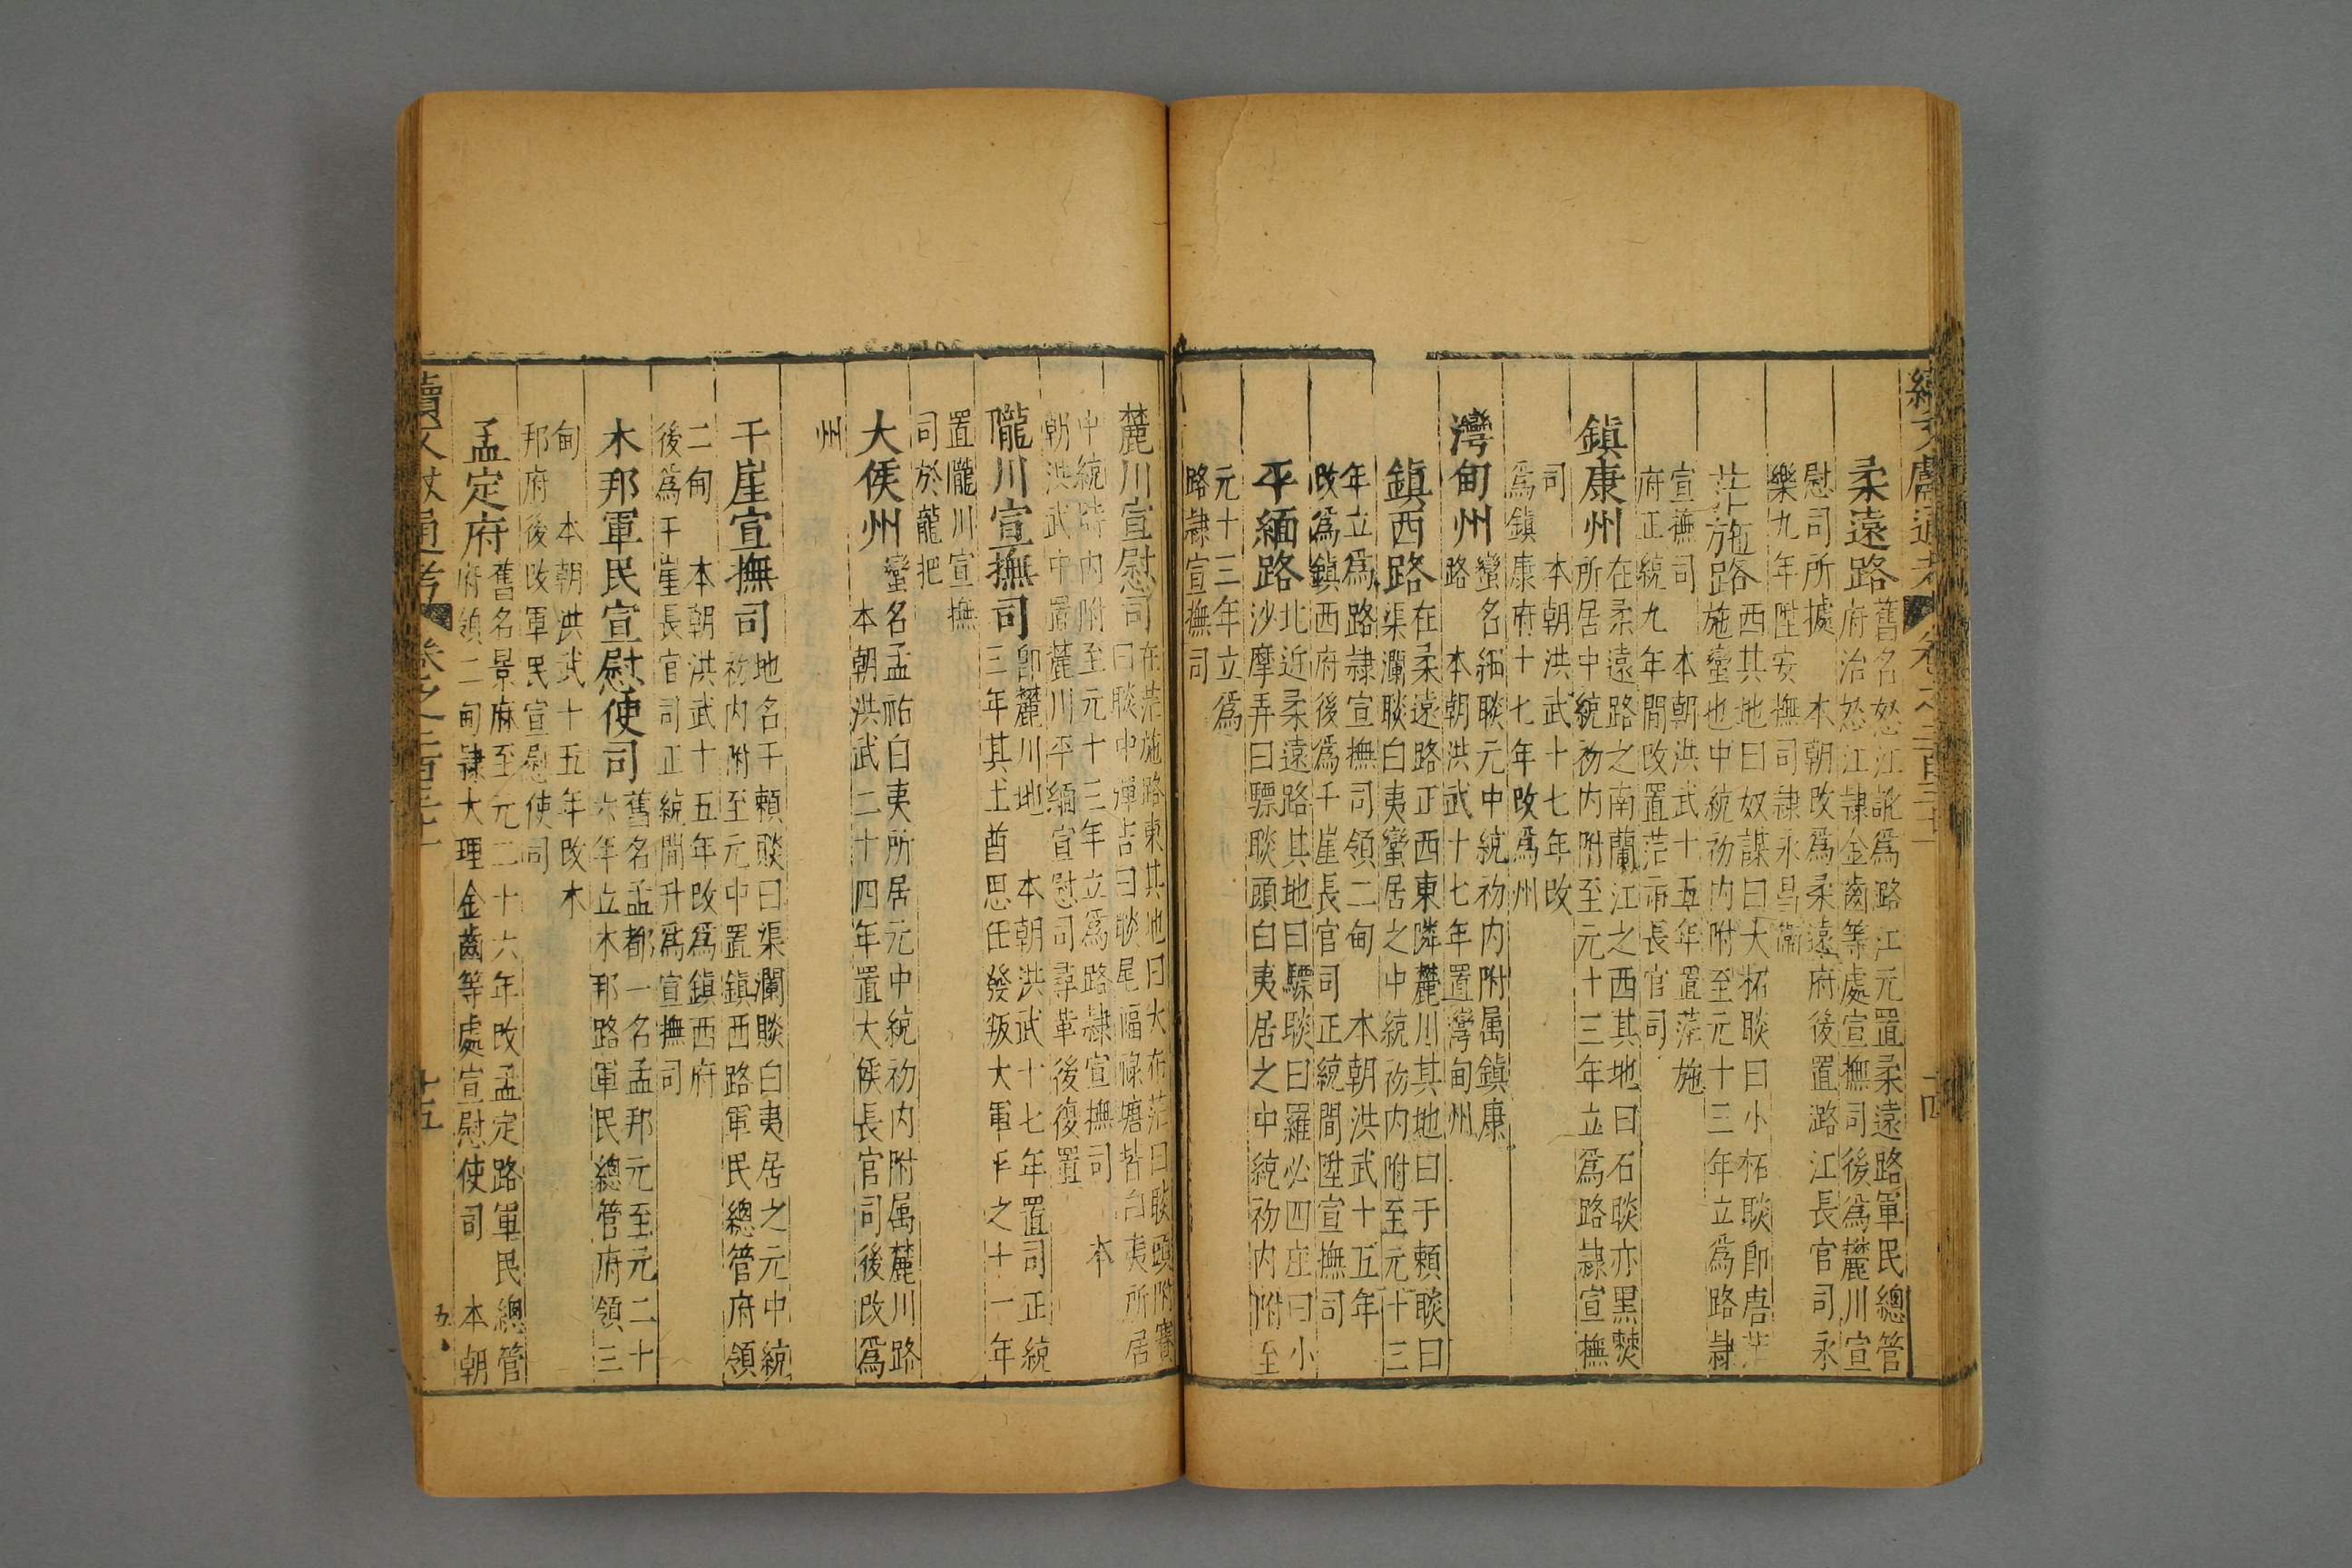 柔遠路舊名怒江訛爲路江元置柔遠路軍民總管
府治怒江隸金齒等處宣撫司後爲麓川宣
慰司所據 本朝改爲柔遠府後置潞江長官司永
樂九年陞安撫司隸永昌衛
茫施路西其地曰奴謀曰大枯睒曰小枯睒卽唐茫
施蠻也中統初内附至元十三年立爲路隷
宣撫司 本朝洪武十五年置茫施
府正統九年間改置茫市長官司
鎮康州在柔遠路之南蘭江之西其地曰石睒亦黑僰
所居中統初内附至元十三年立爲路隷宣撫
司 本朝洪武十七年改
爲鎮康府十七年改爲州
灣甸州蠻名細睒元中統初内附属鎮康
路 本朝洪武十七年置灣甸州
鎮西路在柔遠路正西東隣麓川其地曰于賴睒曰
渠瀾睒白夷蠻居之中統初内附至元十三
年立爲路隷宣撫司領二甸 本朝洪武十五年
改爲鎮西府後爲干崖長官司正統間陞宣撫司
平緬路北近柔遠路其地曰驃睒曰羅必四庄曰小
沙摩弄曰驃睒頭白夷居之中統初内附至
元十三年立爲
路隷宣撫司
麓川宣慰司在茫施路東其地曰大布茫曰睒頭附賽
曰睒中彈吉曰睒尾福祿塘皆白夷所居
中統時内附至元十三年立爲路隷宣撫司 本
朝洪武中置麓川平緬宣慰司尋革後復置
隴川宣撫司卽麓川地 本朝洪武十七年置司正統
三年其土酋思任發叛大軍平之十一年
置隴川宣撫
司於隴把
大侯州蠻名孟祐白夷所居元中統初内附属麓川路
本朝洪武二十四年置大侯長官司後改爲
州
干崖宣撫司地名干賴睒曰渠瀾睒白夷居之元中統
初内附至元中置鎮西路軍民總管府領
二甸 本朝洪武十五年改爲鎮西府
後爲干崖長官司正統間升爲宣撫司
木邦軍民宣慰使司舊名孟都一名孟邦元至元二十
六年立木邦路軍民總管府領三
甸 本朝洪武十五年改木
邦府後改軍民宣慰使司
孟定府舊名景麻至元二十六年改孟定路軍民總管
府領二甸隷大理金齒等處宣慰使司 本朝
十五